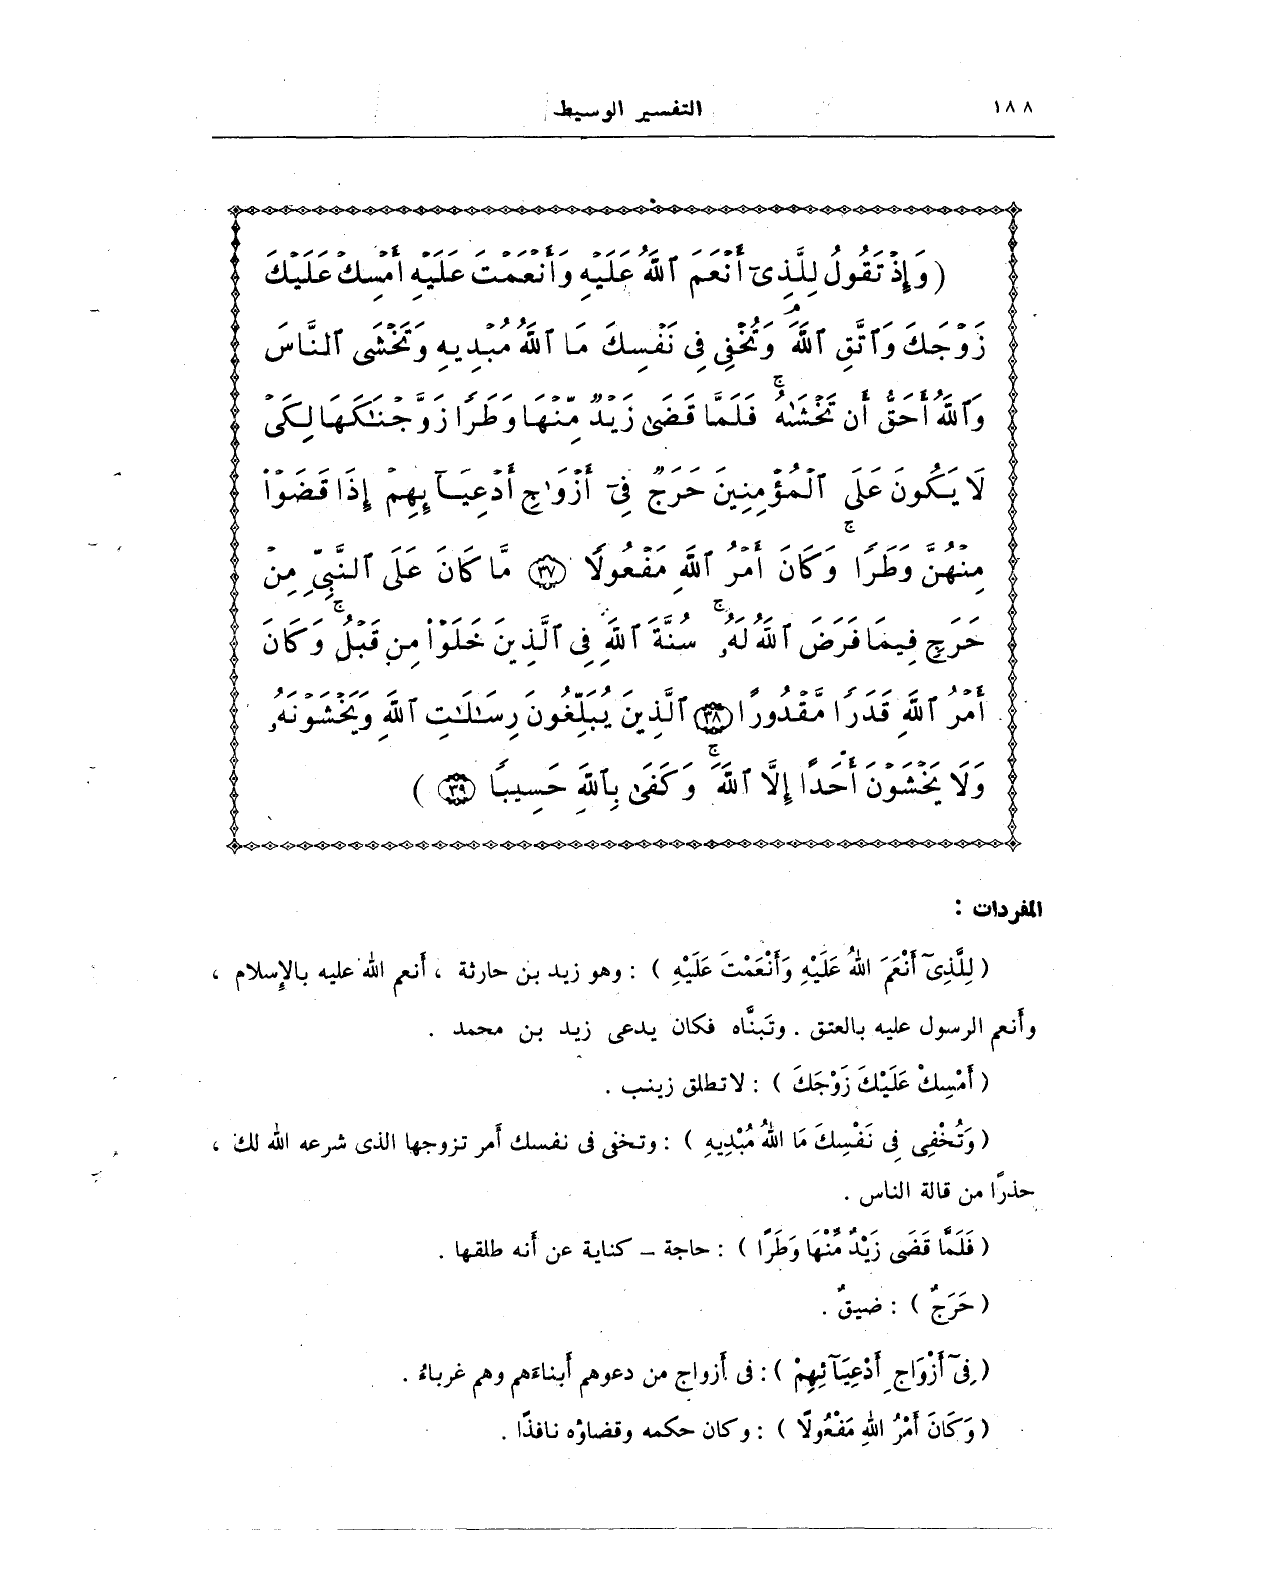 ١٨٨
التفسير الوسيط
( وَإِذْ تَقُولُ لِلَّذِىٓ أَنْعَمَ ٱللَّهُ عَلَيْهِ وَأَنْعَمْتَ عَلَيْهِ أَمْسِكْ عَلَيْكَ
زَوْجَكَ وَٱتَّقِ ٱللَّهَ وَتُخْفِى فِى نَفْسِكَ مَا ٱللَّهُ مُبْدِيهِ وَتَخْشَى ٱلنَّاسَ
وَٱللَّهُ أَحَقُّ أَن تَخْشَىٰهُ ۚ فَلَمَّا قَضَىٰ زَيْدٌ مِّنْهَا وَطَرًا زَوَّجْنَٰكَهَا لِكَىْ
لَا يَكُونَ عَلَى ٱلْمُؤْمِنِينَ حَرَجٌ فِىٓ أَزْوَٰجِ أَدْعِيَآئِهِمْ إِذَا قَضَوْا۟
مِنْهُنَّ وَطَرًا ۚ وَكَانَ أَمْرُ ٱللَّهِ مَفْعُولًا ٣٧ مَّا كَانَ عَلَى ٱلنَّبِىِّ مِنْ
حَرَجٍ فِيمَا فَرَضَ ٱللَّهُ لَهُۥ ۚ سُنَّةَ ٱللَّهِ فِى ٱلَّذِينَ خَلَوْا۟ مِن قَبْلُ ۚ وَكَانَ
أَمْرُ ٱللَّهِ قَدَرًا مَّقْدُورًا ٣٨ ٱلَّذِينَ يُبَلِّغُونَ رِسَٰلَٰتِ ٱللَّهِ وَيَخْشَوْنَهُۥ
وَلَا يَخْشَوْنَ أَحَدًا إِلَّا ٱللَّهَ ۚ وَكَفَىٰ بِٱللَّهِ حَسِيبًا ٣٩ )
المفردات :
( لِلَّذِىٓ أَنْعَمَ اللهُ عَلَيْهِ وَأَنْعَمْتَ عَلَيْهِ ) : وهو زيد بن حارثة ، أنعم الله عليه بالإسلام ،
وأنعم الرسول عليه بالعتق . وتبنَّاه فكان يدعى زيد بن محمد .
( أَمْسِكْ عَلَيْكَ زَوْجَكَ ) : لا تطلق زينب .
( وَتُخْفِى فِى نَفْسِكَ مَا اللهُ مُبْدِيهِ ) : وتخفى فى نفسك أمر تزوجها الذى شرعه الله لك ،
حذرًا من قالة الناس .
( فَلَمَّا قَضَى زَيْدٌ مِّنْهَا وَطَرًا ) : حاجة – كناية عن أنه طلقها .
( حَرَجٌ ) : ضيقٌ .
( فِىٓ أَزْوَاجِ أَدْعِيَآئِهِمْ ) : فى أزواج من دعوهم أبناءهم وهم غرباءُ .
( وَكَانَ أَمْرُ اللهِ مَفْعُولًا ) : وكان حكمه وقضاؤه نافذًا .